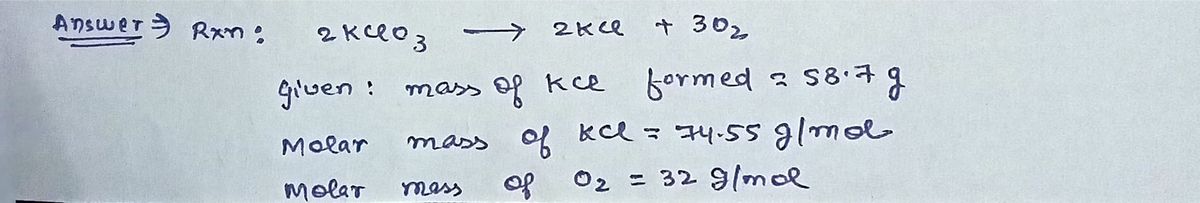 Answer ⇒ Rxn : 2KClO₃ ⟶ 2KCl + 3O₂
Given : mass of KCl formed = 58.7 g
Molar mass of KCl = 74.55 g/mol
Molar mass of O₂ = 32 g/mol